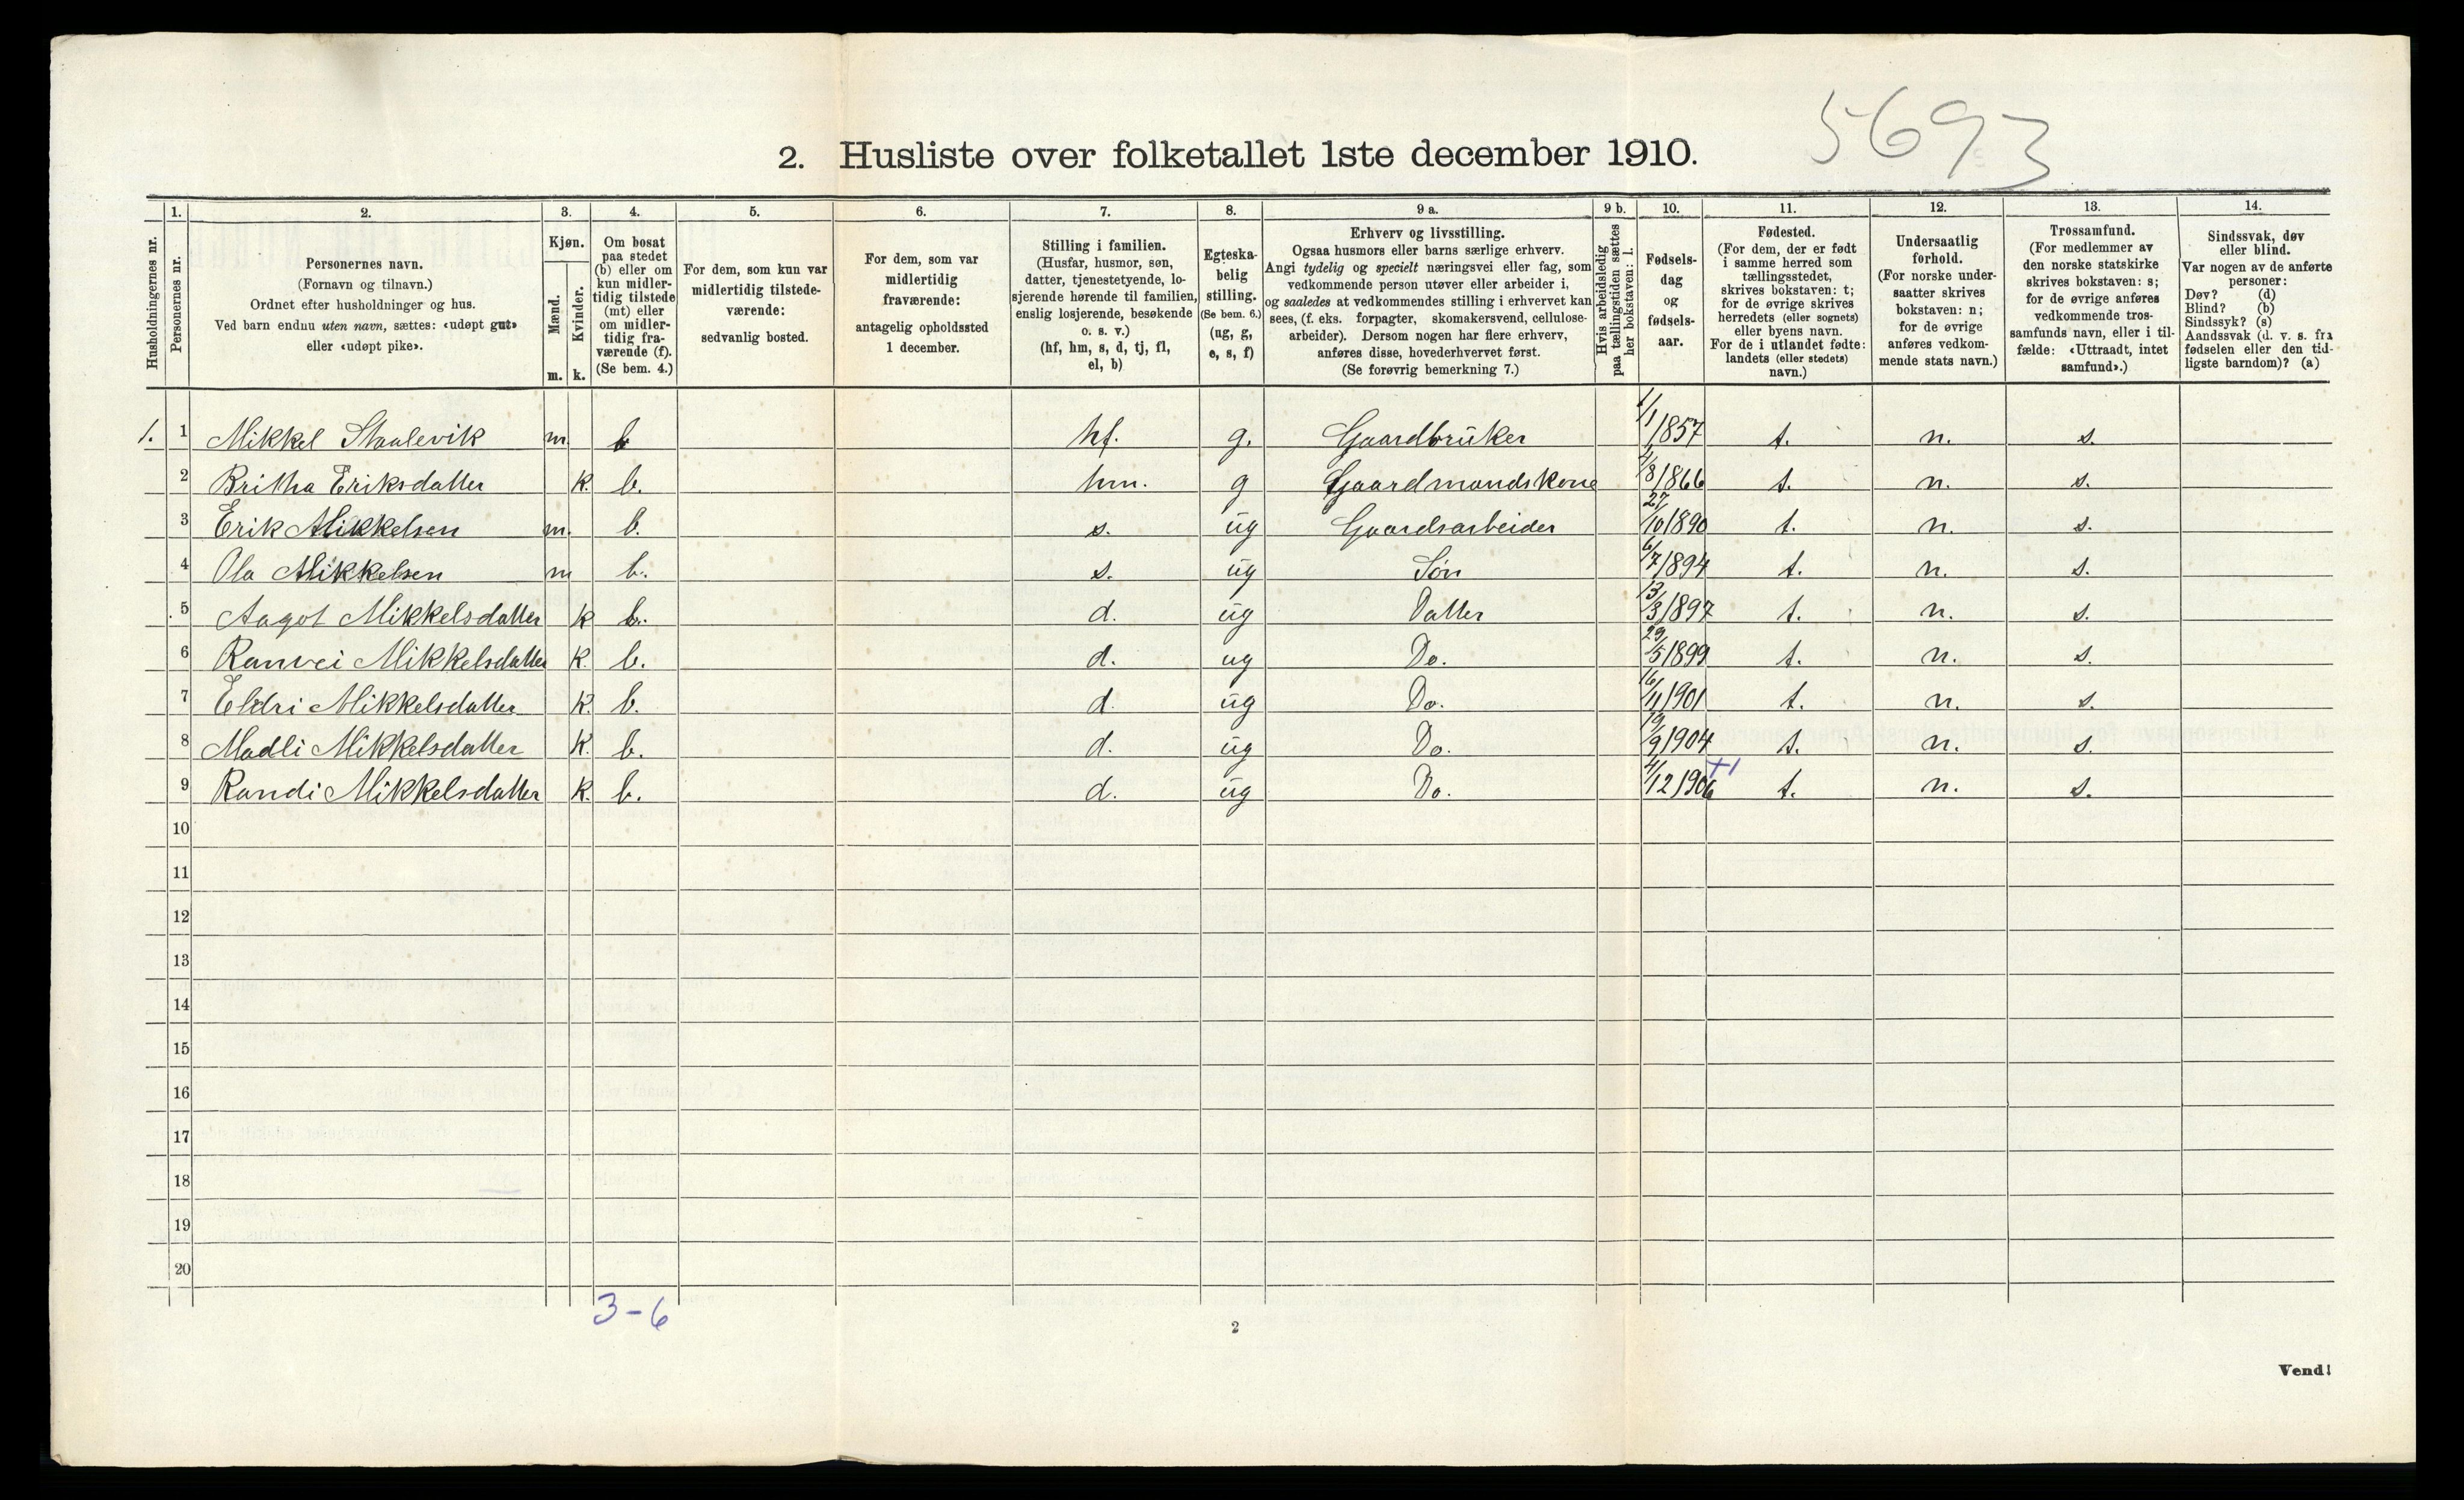 5693
2. Husliste over folketallet 1ste december 1910.
Husholdningernes nr.
1.
Personernes nr.
2.
Personernes navn.
(Fornavn og tilnavn.)
Ordnet efter husholdninger og hus.
Ved barn endnu uten navn, sættes: «udøpt gut»
eller «udøpt pike».
3.
Kjøn.
Mænd.
Kvinder.
m. k.
4.
Om bosat
paa stedet
(b) eller om
kun midler-
tidig tilstede
(mt) eller
om midler-
tidig fra-
værende (f).
(Se bem. 4.)
5.
For dem, som kun var
midlertidig tilstede-
værende:
sedvanlig bosted.
6.
For dem, som var
midlertidig
fraværende:
antagelig opholdssted
1 december.
7.
Stilling i familien.
(Husfar, husmor, søn,
datter, tjenestetyende, lo-
sjerende hørende til familien,
enslig losjerende, besøkende
o. s. v.)
(hf, hm, s, d, tj, fl,
el, b)
8.
Egteska-
belig
stilling.
(Se bem. 6.)
(ug, g,
e, s, f)
9 a.
Erhverv og livsstilling.
Ogsaa husmors eller barns særlige erhverv.
Angi tydelig og specielt næringsvei eller fag, som
vedkommende person utøver eller arbeider i,
og saaledes at vedkommendes stilling i erhvervet kan
sees, (f. eks. forpagter, skomakersvend, cellulose-
arbeider). Dersom nogen har flere erhverv,
anføres disse, hovederhvervet først.
(Se forøvrig bemerkning 7.)
9 b.
Hvis arbeidsledig
paa tællingstiden sættes
her bokstaven: l.
10.
Fødsels-
dag
og
fødsels-
aar.
11.
Fødested.
(For dem, der er født
i samme herred som
tællingsstedet,
skrives bokstaven: t;
for de øvrige skrives
herredets (eller sognets)
eller byens navn.
For de i utlandet fødte:
landets (eller stedets)
navn.)
12.
Undersaatlig
forhold.
(For norske under-
saatter skrives
bokstaven: n;
for de øvrige
anføres vedkom-
mende stats navn.)
13.
Trossamfund.
(For medlemmer av
den norske statskirke
skrives bokstaven: s;
for de øvrige anføres
vedkommende tros-
samfunds navn, eller i til-
fælde: «Uttraadt, intet
samfund».)
14.
Sindssvak, døv
eller blind.
Var nogen av de anførte
personer:
Døv? (d)
Blind? (b)
Sindssyk? (s)
Aandssvak (d. v. s. fra
fødselen eller den tid-
ligste barndom)? (a)
1. 1 Mikkel Staalevik m. b hf. g. Gaardbruker 1/1 1857 t. n. s.
2 Britha Eriksdatter k. b. hm. g Gaardmandskone 4/8 1866 t. n. s.
3 Erik Mikkelsen m. b. s. ug Gaardsarbeider 27/10 1890 t. n. s.
4 Ola Mikkelsen m b. s. ug Søn 6/7 1894 t. n. s.
5 Aagot Mikkelsdatter k b. d. ug Datter 13/3 1897 t. n. s.
6 Ranvei Mikkelsdatter k. b. d. ug Do. 29/5 1899 t. n. s.
7 Eldri Mikkelsdatter k. b. d. ug Do. 16/11 1901 t. n. s.
8 Madli Mikkelsdatter k. b. d. ug Do. 19/9 1904 t. n. s.
9 Randi Mikkelsdatter k. b. d. ug Do. 4/12 1906 +1 t. n. s.
10
11
12
13
14
15
16
17
18
19
20
3-6
2
Vend!